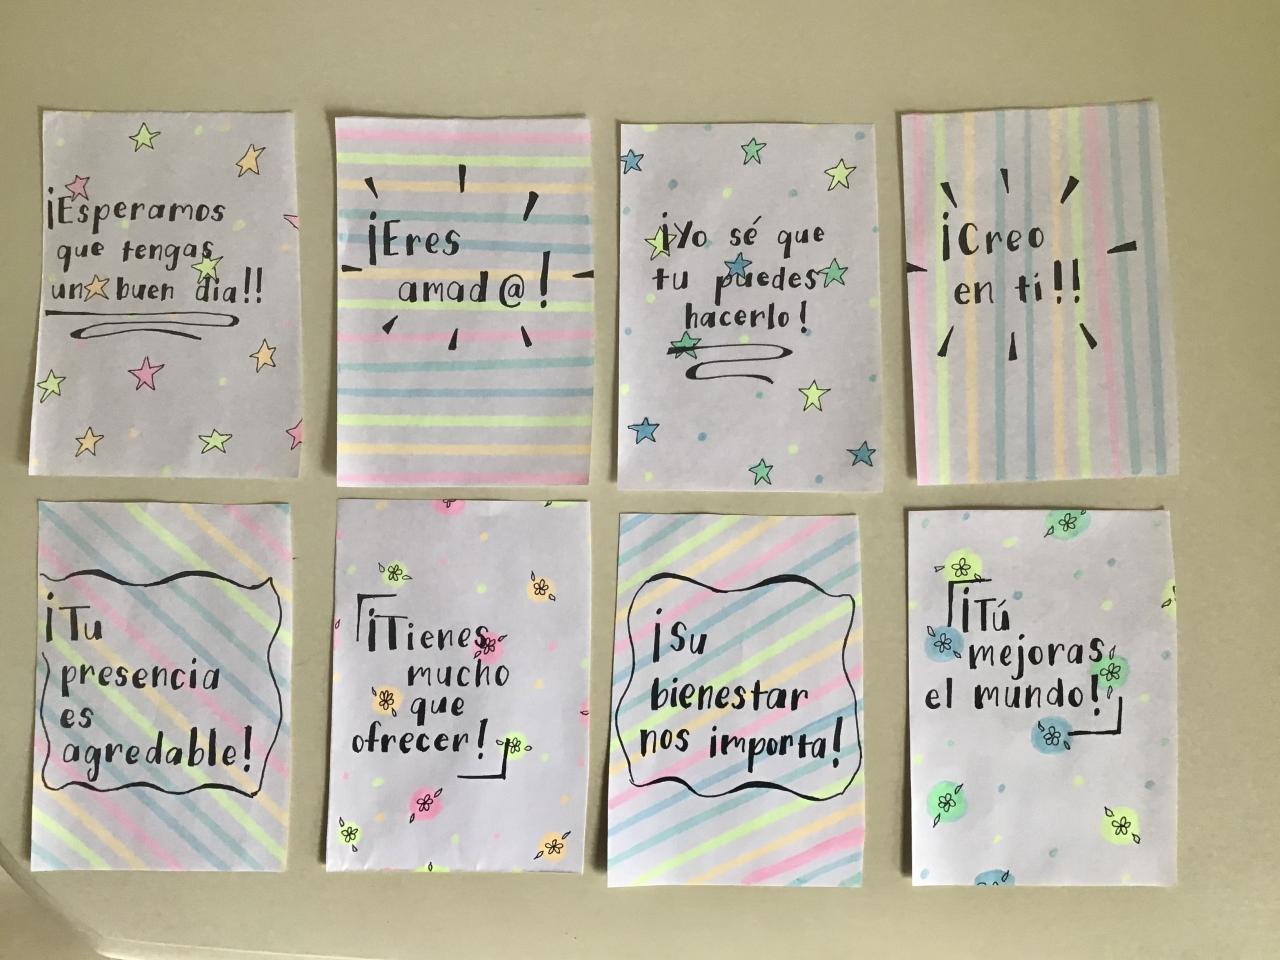 ¡Esperamos
que tengas
un buen día!!
¡Eres
amad@!
¡Yo sé que
tu puedes
hacerlo!
¡Creo
en tí!!
¡Tu
presencia
es
agredable!
¡Tienes
mucho
que
ofrecer!
¡Su
bienestar
nos importa!
¡Tú
mejoras
el mundo!